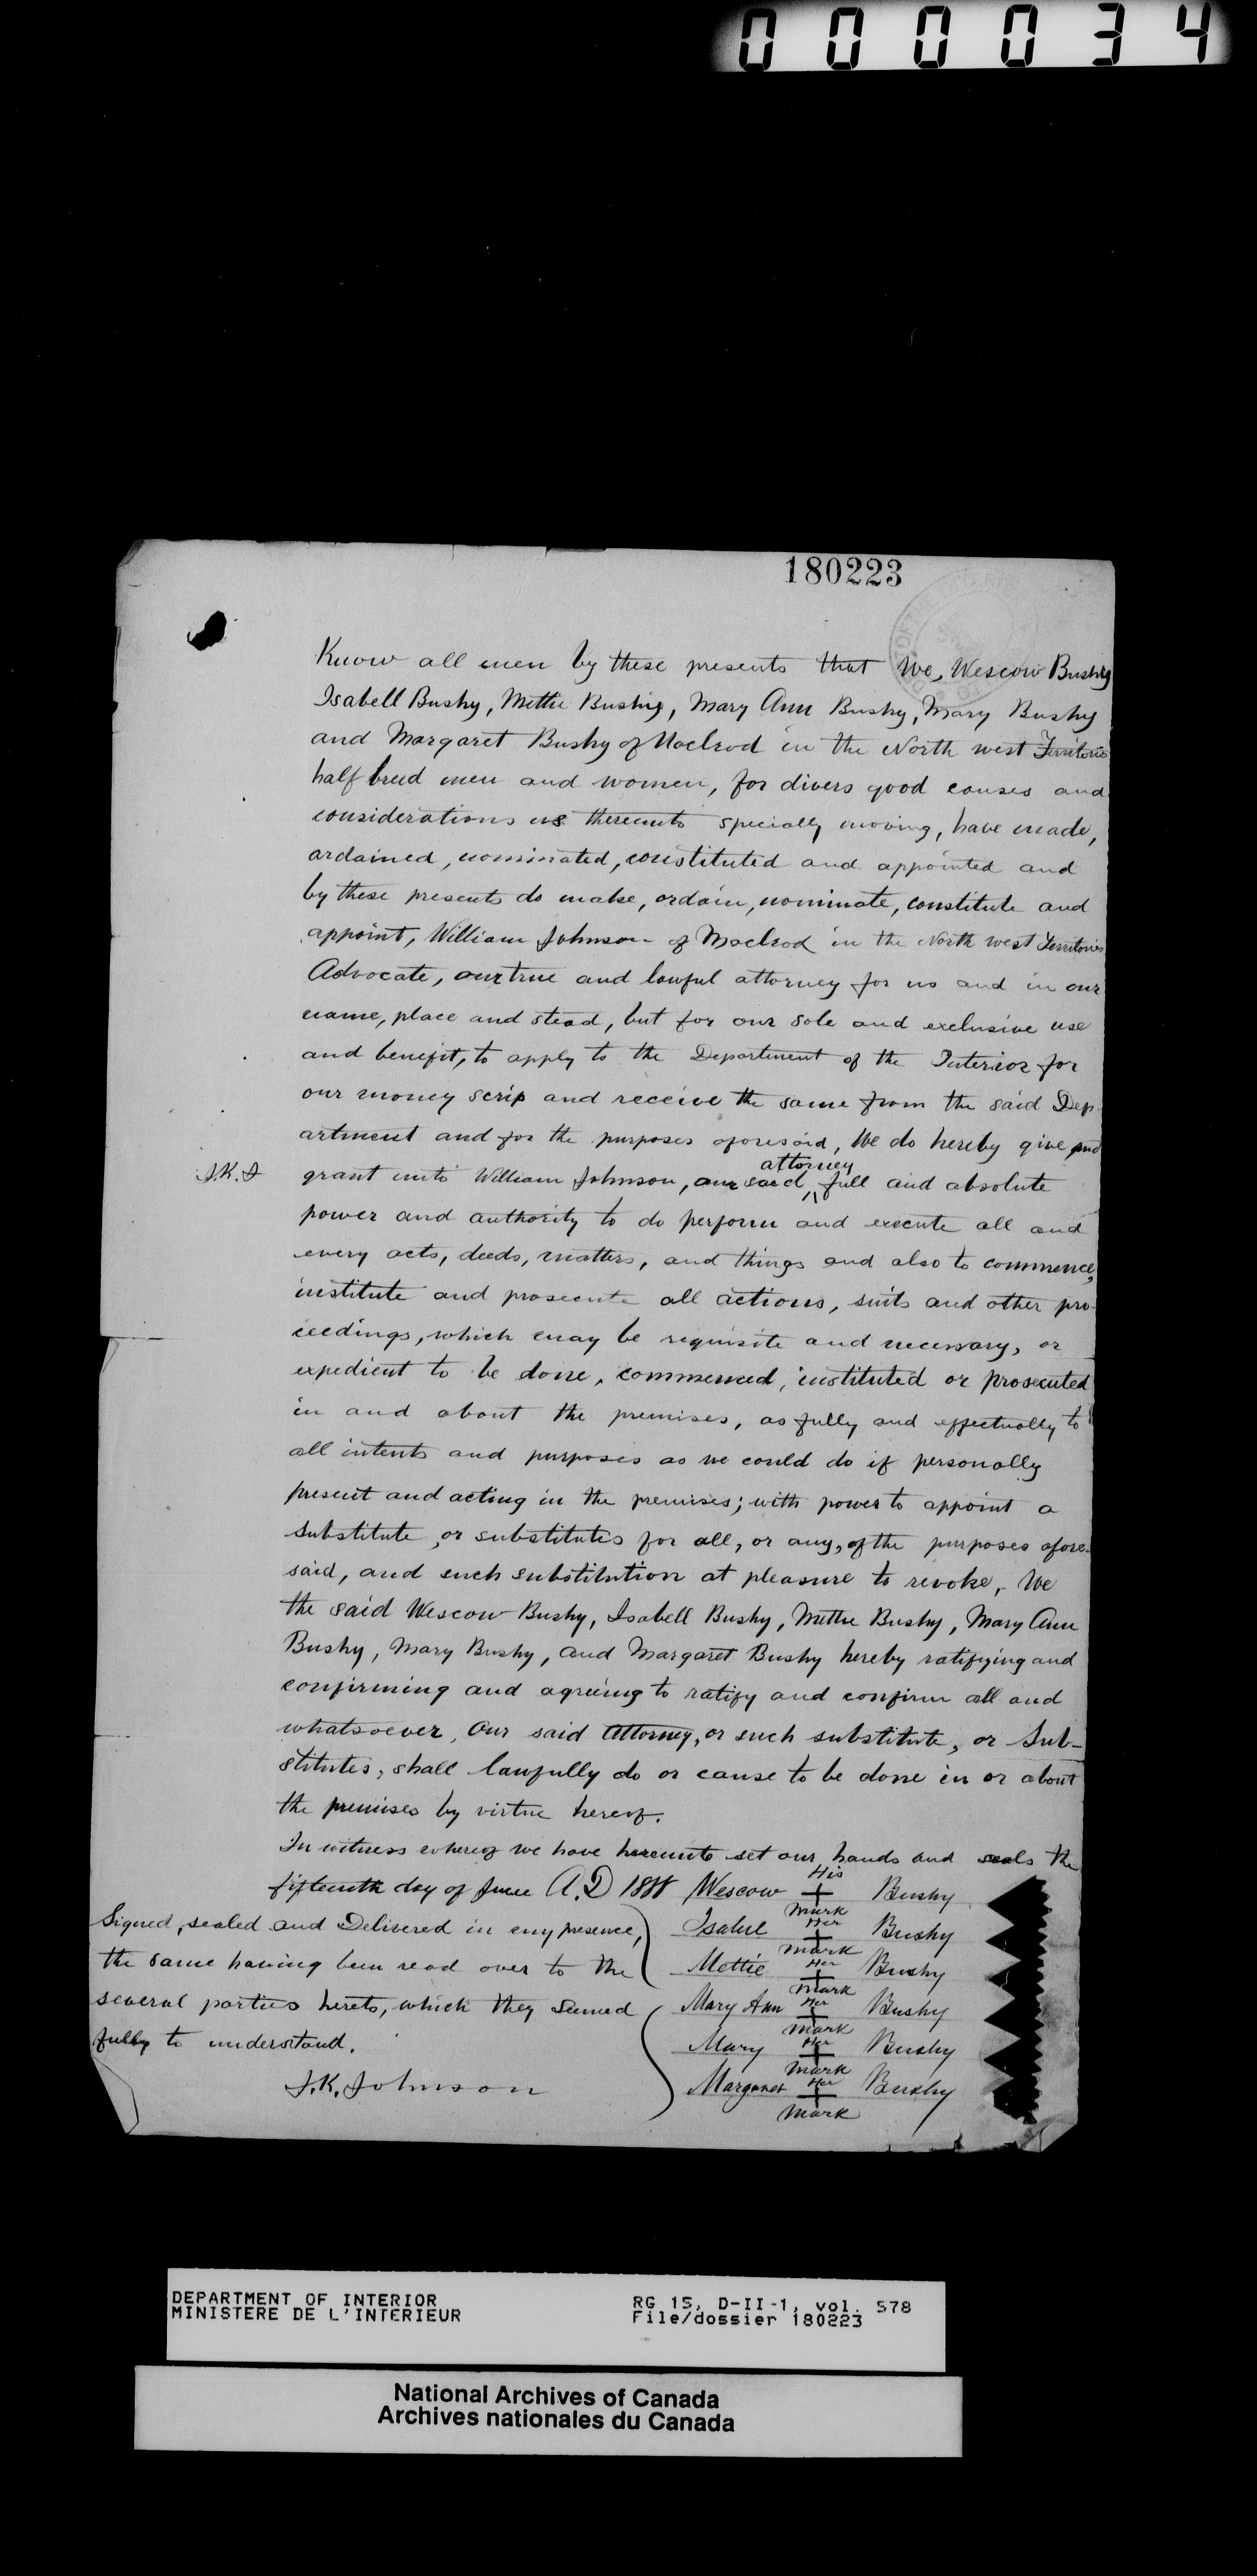 000034
180223
Know all men by these presents that We, Wescow Bushy
Isabell Bushy, Mettie Bushy, Mary Ann Bushy, Mary Bushy
and Margaret Bushy of Macleod in the North west Territories
half breed men and women, for divers good causes and
considerations us thereunto specially moving, have made,
ordained, nominated, constituted and appointed and
by these presents do make, ordain, nominate, constitute and
appoint, William Johnson of Macleod in the North west Territories
Advocate, our true and lawful attorney for us and in our
name, place and stead, but for our sole and exclusive use
and benefit, to apply to the Department of the Interior for
our money scrip and receive the same from the said Dep-
artment and for the purposes aforesaid, We do hereby give and
attorney
J.K.J grant unto William Johnson, our said ^ full and absolute
power and authority to do perform and execute all and
every acts, deeds, matters, and things and also to commence,
institute and prosecute all actions, suits and other pro-
ceedings, which may be requisite and necessary, or
expedient to be done, commenced, instituted or prosecuted
in and about the premises, as fully and effectually to
all intents and purposes as we could do if personally
present and acting in the premises; with power to appoint a
substitute, or substitutes for all, or any, of the purposes afore-
said, and such substitution at pleasure to revoke, We
the said Wescow Bushy, Isabell Bushy, Mettie Bushy, Mary Ann
Bushy, Mary Bushy, and Margaret Bushy hereby ratifying and
confirming and agreeing to ratify and confirm all and
whatsoever, Our said Attorney, or such substitute, or Sub-
stitutes, shall lawfully do or cause to be done in or about
the premises by virtue hereof.
In witness whereof we have hereunto set our hands and seals the
fifteenth day of June A.D 1888 Wescow His + Mark Bushy
Signed, sealed and Delivered in my presence, Isabel Her + Mark Bushy
the same having been read over to the Mettie Her + Mark Bushy
several parties hereto, which they seemed Mary Ann Her + Mark Bushy
fully to understand. Mary Her + Mark Bushy
J.K. Johnson Margaret Her + Mark Bushy
DEPARTMENT OF INTERIOR RG 15, D-II-1, vol. 578
MINISTERE DE L'INTERIEUR File/dossier 180223
National Archives of Canada
Archives nationales du Canada